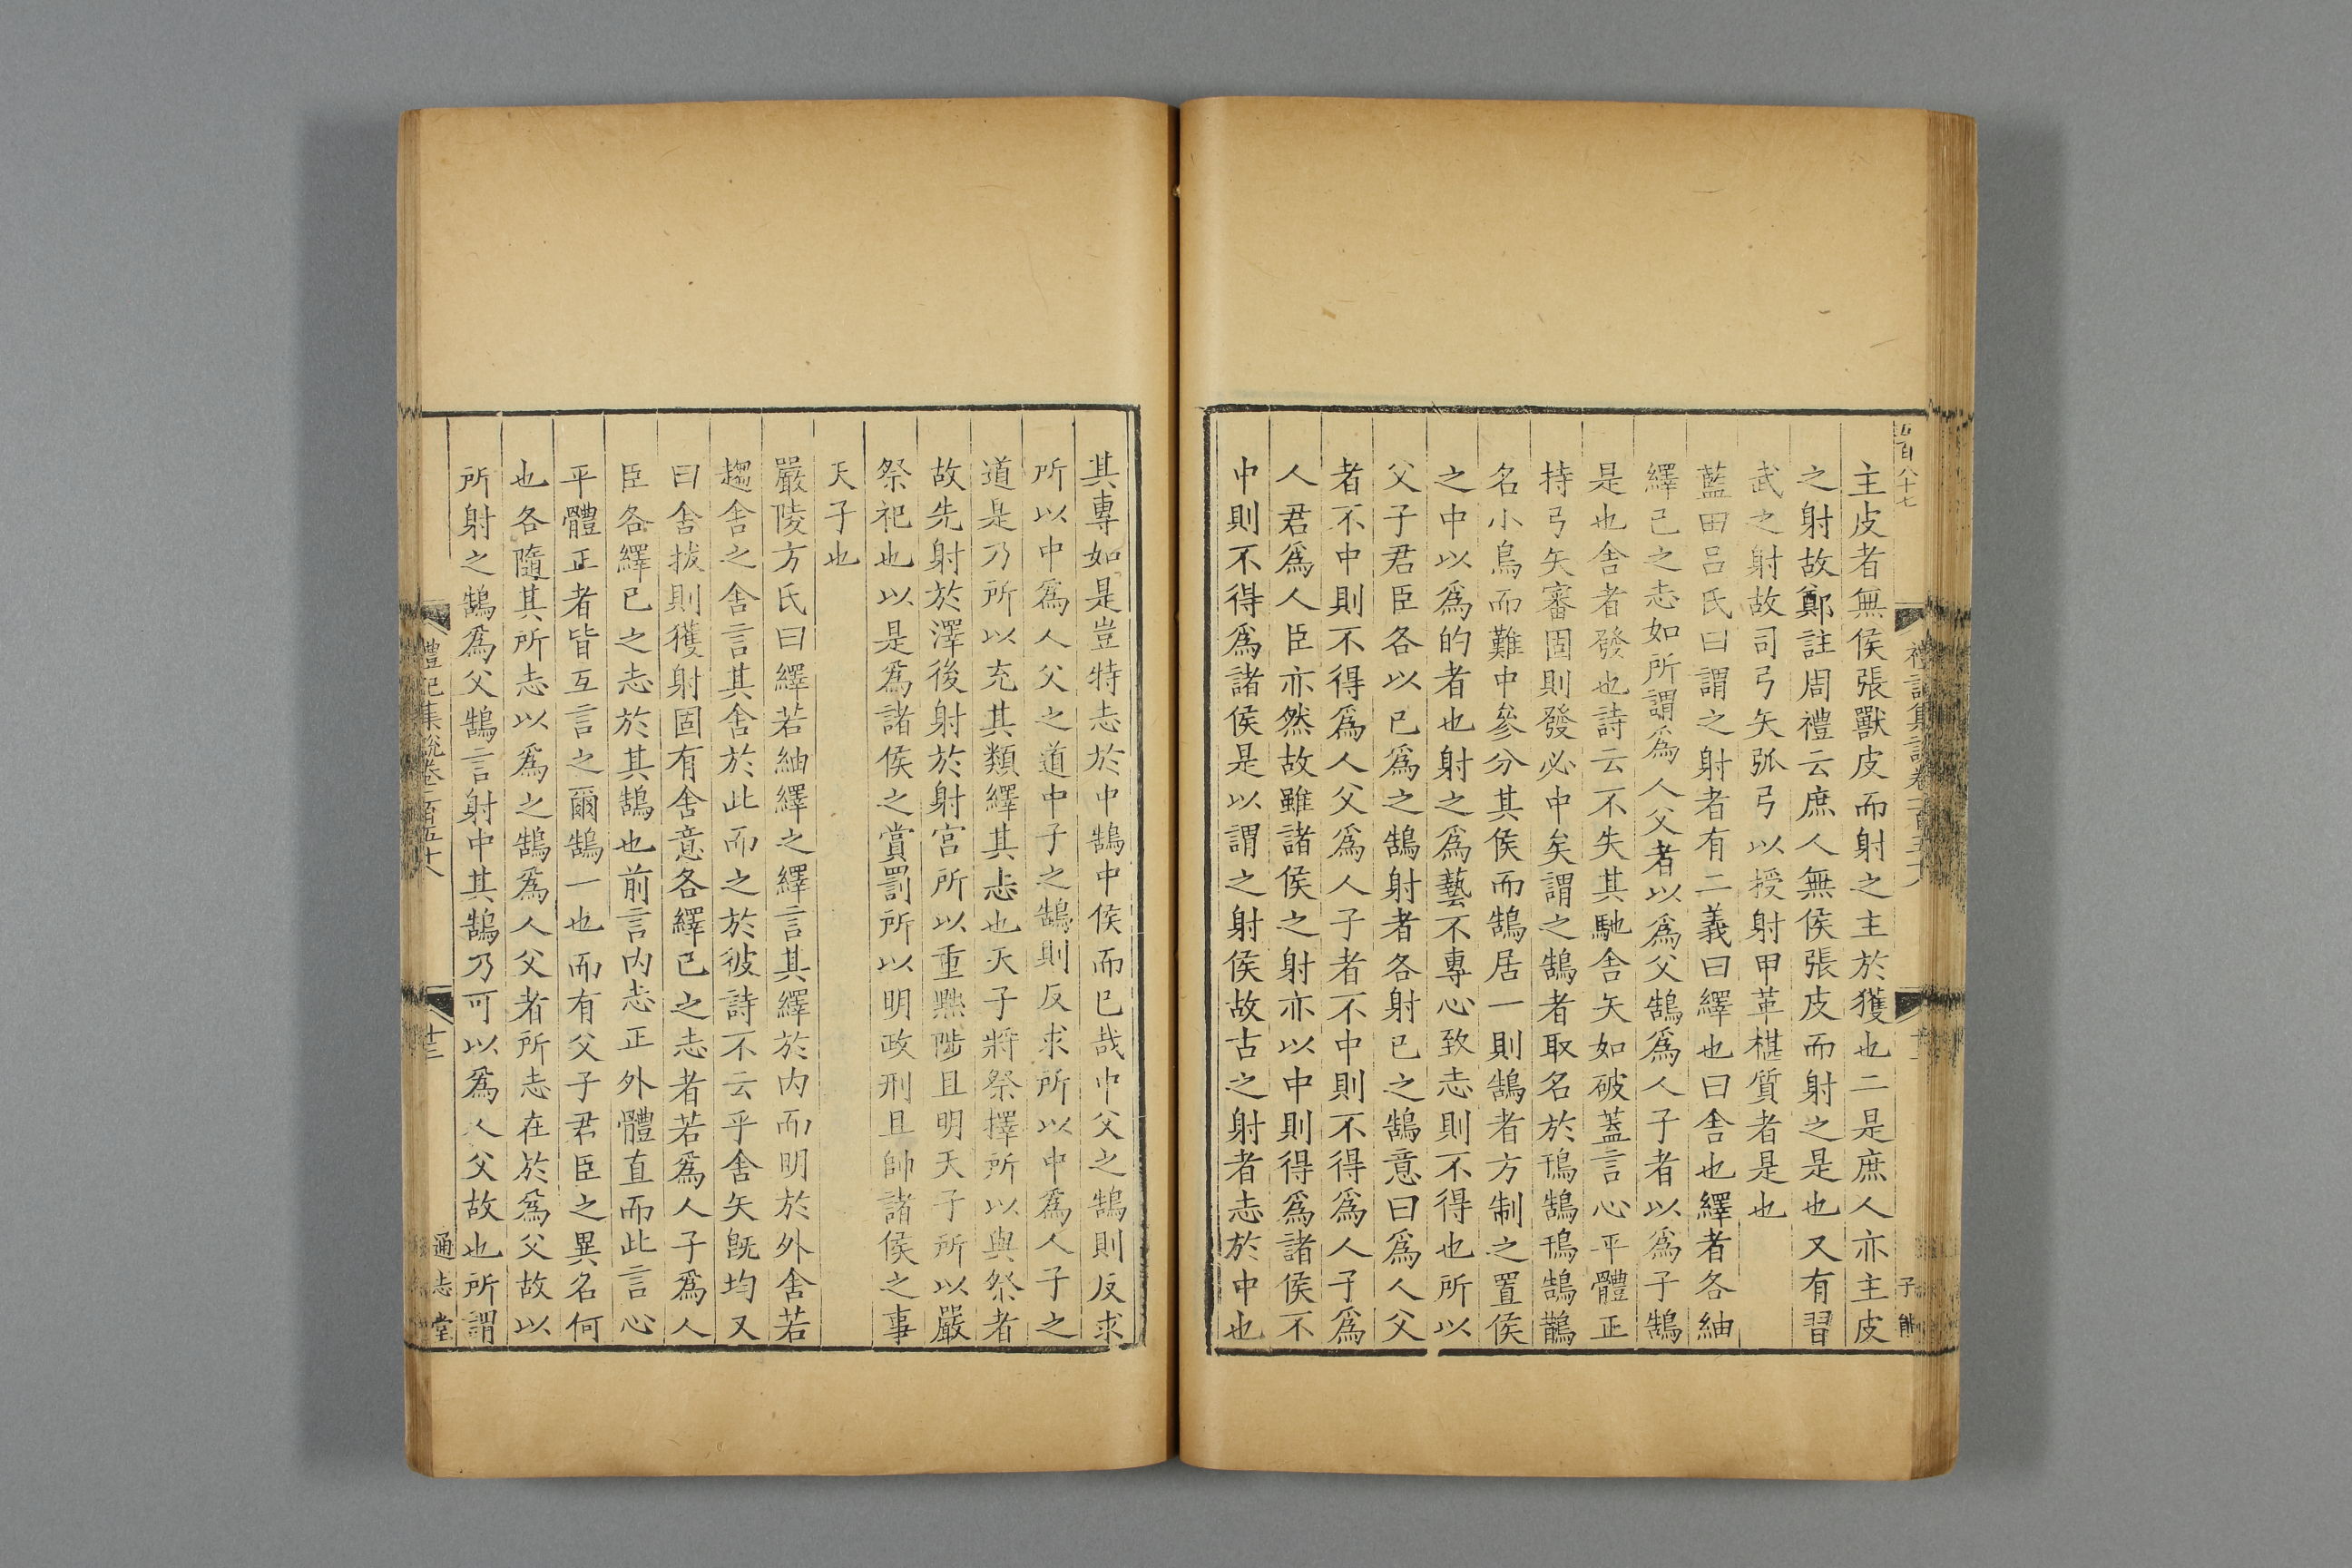 五百八十七
主皮者無侯張獸皮而射之主於獲也二是庶人亦主皮
之射故鄭註周禮云庶人無侯張皮而射之是也又有習
武之射故司弓矢弧弓以授射甲革椹質者是也
藍田吕氏曰謂之射者有二義曰繹也曰舍也繹者各紬
繹己之志如所謂爲人父者以爲父鵠爲人子者以爲子鵠
是也舍者發也詩云不失其馳舍矢如破蓋言心平體正
持弓矢審固則發必中矣謂之鵠者取名於鳱鵠鳱鵠鵲
名小鳥而難中參分其侯而鵠居一則鵠者方制之置侯
之中以爲的者也射之爲藝不專心致志則不得也所以
父子君臣各以己爲之鵠射者各射己之鵠意曰爲人父
者不中則不得爲人父爲人子者不中則不得爲人子爲
人君爲人臣亦然故雖諸侯之射亦以中則得爲諸侯不
中則不得爲諸侯是以謂之射侯故古之射者志於中也
其專如是豈特志於中鵠中侯而已哉中父之鵠則反求
所以中爲人父之道中子之鵠則反求所以中爲人子之
道是乃所以充其類繹其志也天子將祭擇所以與祭者
故先射於澤後射於射宮所以重黜陟且明天子所以嚴
祭祀也以是爲諸侯之賞罰所以明政刑且帥諸侯之事
天子也
嚴陵方氏曰繹若紬繹之繹言其繹於内而明於外舍若
趨舍之舍言其舍於此而之於彼詩不云乎舍矢旣均又
曰舍拔則獲射固有舍意各繹己之志者若爲人子爲人
臣各繹已之志於其鵠也前言内志正外體直而此言心
平體正者皆互言之爾鵠一也而有父子君臣之異名何
也各隨其所志以爲之鵠爲人父者所志在於爲父故以
所射之鵠爲父鵠言射中其鵠乃可以爲人父故也所謂
禮記集說卷一百五十八
十三
通志堂